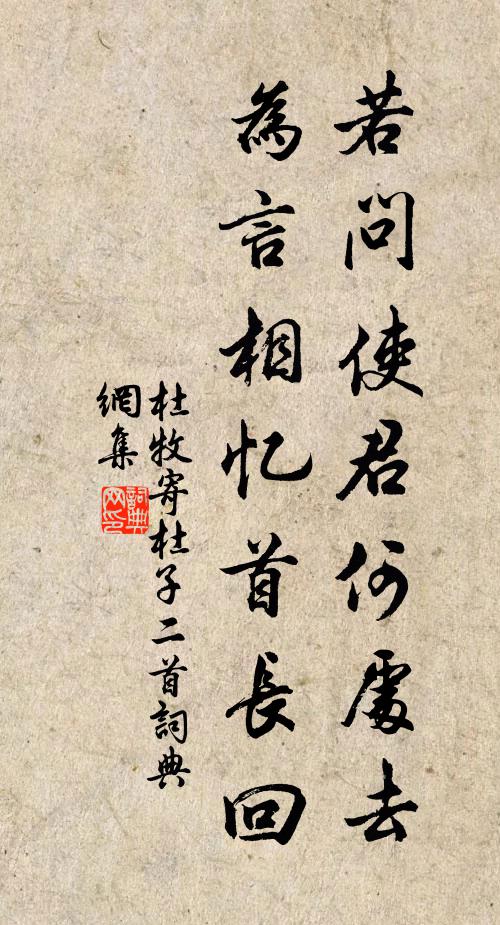 若問使君何處去
為言相忆首長回
杜牧寄杜子二首詞典
網集
詞典
网印